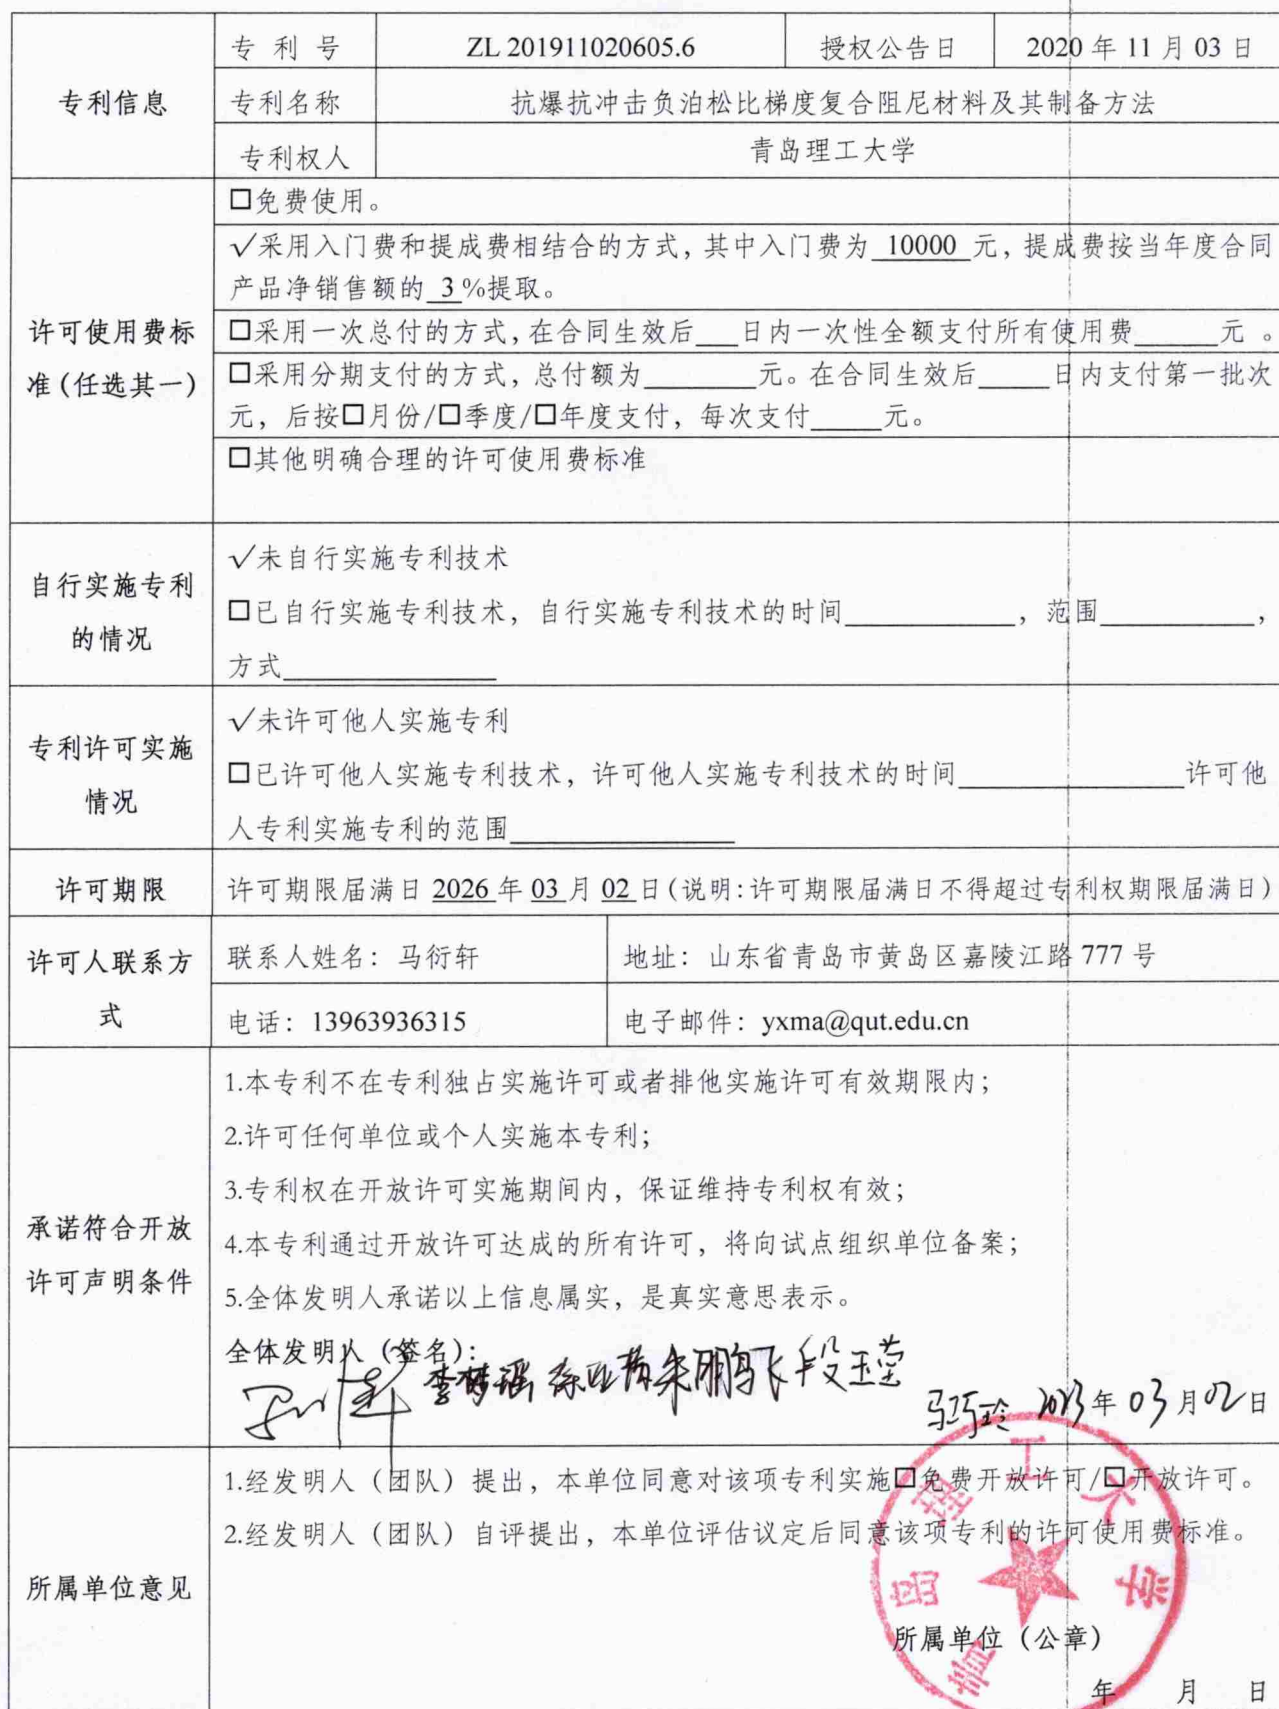 专利信息
专利号 ZL 201911020605.6 授权公告日 2020年11月03日
专利名称 抗爆抗冲击负泊松比梯度复合阻尼材料及其制备方法
专利权人 青岛理工大学
许可使用费标
准(任选其一)
□免费使用。
√采用入门费和提成费相结合的方式，其中入门费为 10000 元，提成费按当年度合同
产品净销售额的 3 %提取。
□采用一次总付的方式，在合同生效后___日内一次性全额支付所有使用费_____元 。
□采用分期支付的方式，总付额为________元。在合同生效后_____日内支付第一批次
元，后按□月份/□季度/□年度支付，每次支付_____元。
□其他明确合理的许可使用费标准
自行实施专利
的情况
√未自行实施专利技术
□已自行实施专利技术，自行实施专利技术的时间____________，范围___________，
方式_______________
专利许可实施
情况
√未许可他人实施专利
□已许可他人实施专利技术，许可他人实施专利技术的时间________________许可他
人专利实施专利的范围________________
许可期限
许可期限届满日 2026 年 03 月 02 日(说明:许可期限届满日不得超过专利权期限届满日)
许可人联系方
式
联系人姓名：马衍轩 地址：山东省青岛市黄岛区嘉陵江路 777 号
电话：13963936315 电子邮件：yxma@qut.edu.cn
承诺符合开放
许可声明条件
1.本专利不在专利独占实施许可或者排他实施许可有效期限内；
2.许可任何单位或个人实施本专利；
3.专利权在开放许可实施期间内，保证维持专利权有效；
4.本专利通过开放许可达成的所有许可，将向试点组织单位备案；
5.全体发明人承诺以上信息属实，是真实意思表示。
全体发明人（签名）：
李梦瑶 朱鹏飞 段玉莹
马巧玲 2023年03月02日
所属单位意见
1.经发明人（团队）提出，本单位同意对该项专利实施□免费开放许可/□开放许可。
2.经发明人（团队）自评提出，本单位评估议定后同意该项专利的许可使用费标准。
青岛理工大学
所属单位（公章）
年 月 日